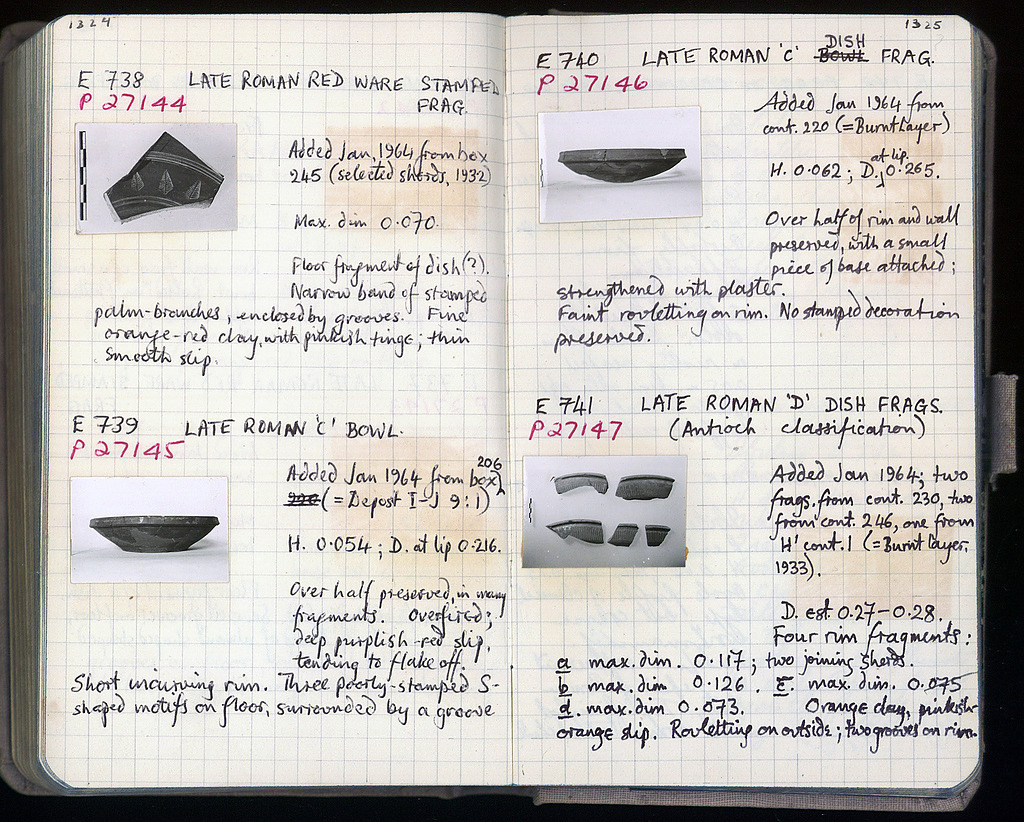 1324
E 738 LATE ROMAN RED WARE STAMPED
P 27144 FRAG.
Added Jan, 1964 from box
245 (selected sherds, 1932)
Max. dim 0.070.
Floor fragment of dish(?).
Narrow band of stamped
palm-branches, enclosed by grooves. Fine
orange-red clay, with pinkish tinge; thin
smooth slip.
E 739 LATE ROMAN 'C' BOWL.
P 27145
Added Jan 1964 from box 206
(= Deposit I-J 9:1)
H. 0.054; D. at lip 0.216.
Over half preserved, in many
fragments. Overfired?;
deep purplish-red slip,
tending to flake off.
Short incurving rim. Three poorly-stamped S-
shaped motifs on floor, surrounded by a groove
1325
E 740 LATE ROMAN 'C' BOWL DISH FRAG.
P 27146
Added Jan 1964 from
cont. 220 (=Burnt Layer)
H. 0.062; D. at lip. 0.265.
Over half of rim and wall
preserved, with a small
piece of base attached;
strengthened with plaster.
Faint rouletting on rim. No stamped decoration
preserved.
E 741 LATE ROMAN 'D' DISH FRAGS.
P 27147 (Antioch classification)
Added Jan 1964; two
frags. from cont. 230, two
from cont. 246, one from
H' cont. 1 (=Burnt Layer,
1933).
D. est. 0.27–0.28.
Four rim fragments:
a max. dim. 0.117; two joining sherds.
b max. dim 0.126. c. max. dim. 0.075
d. max. dim 0.073. Orange clay, pinkish-
orange slip. Rouletting on outside; two grooves on rim.